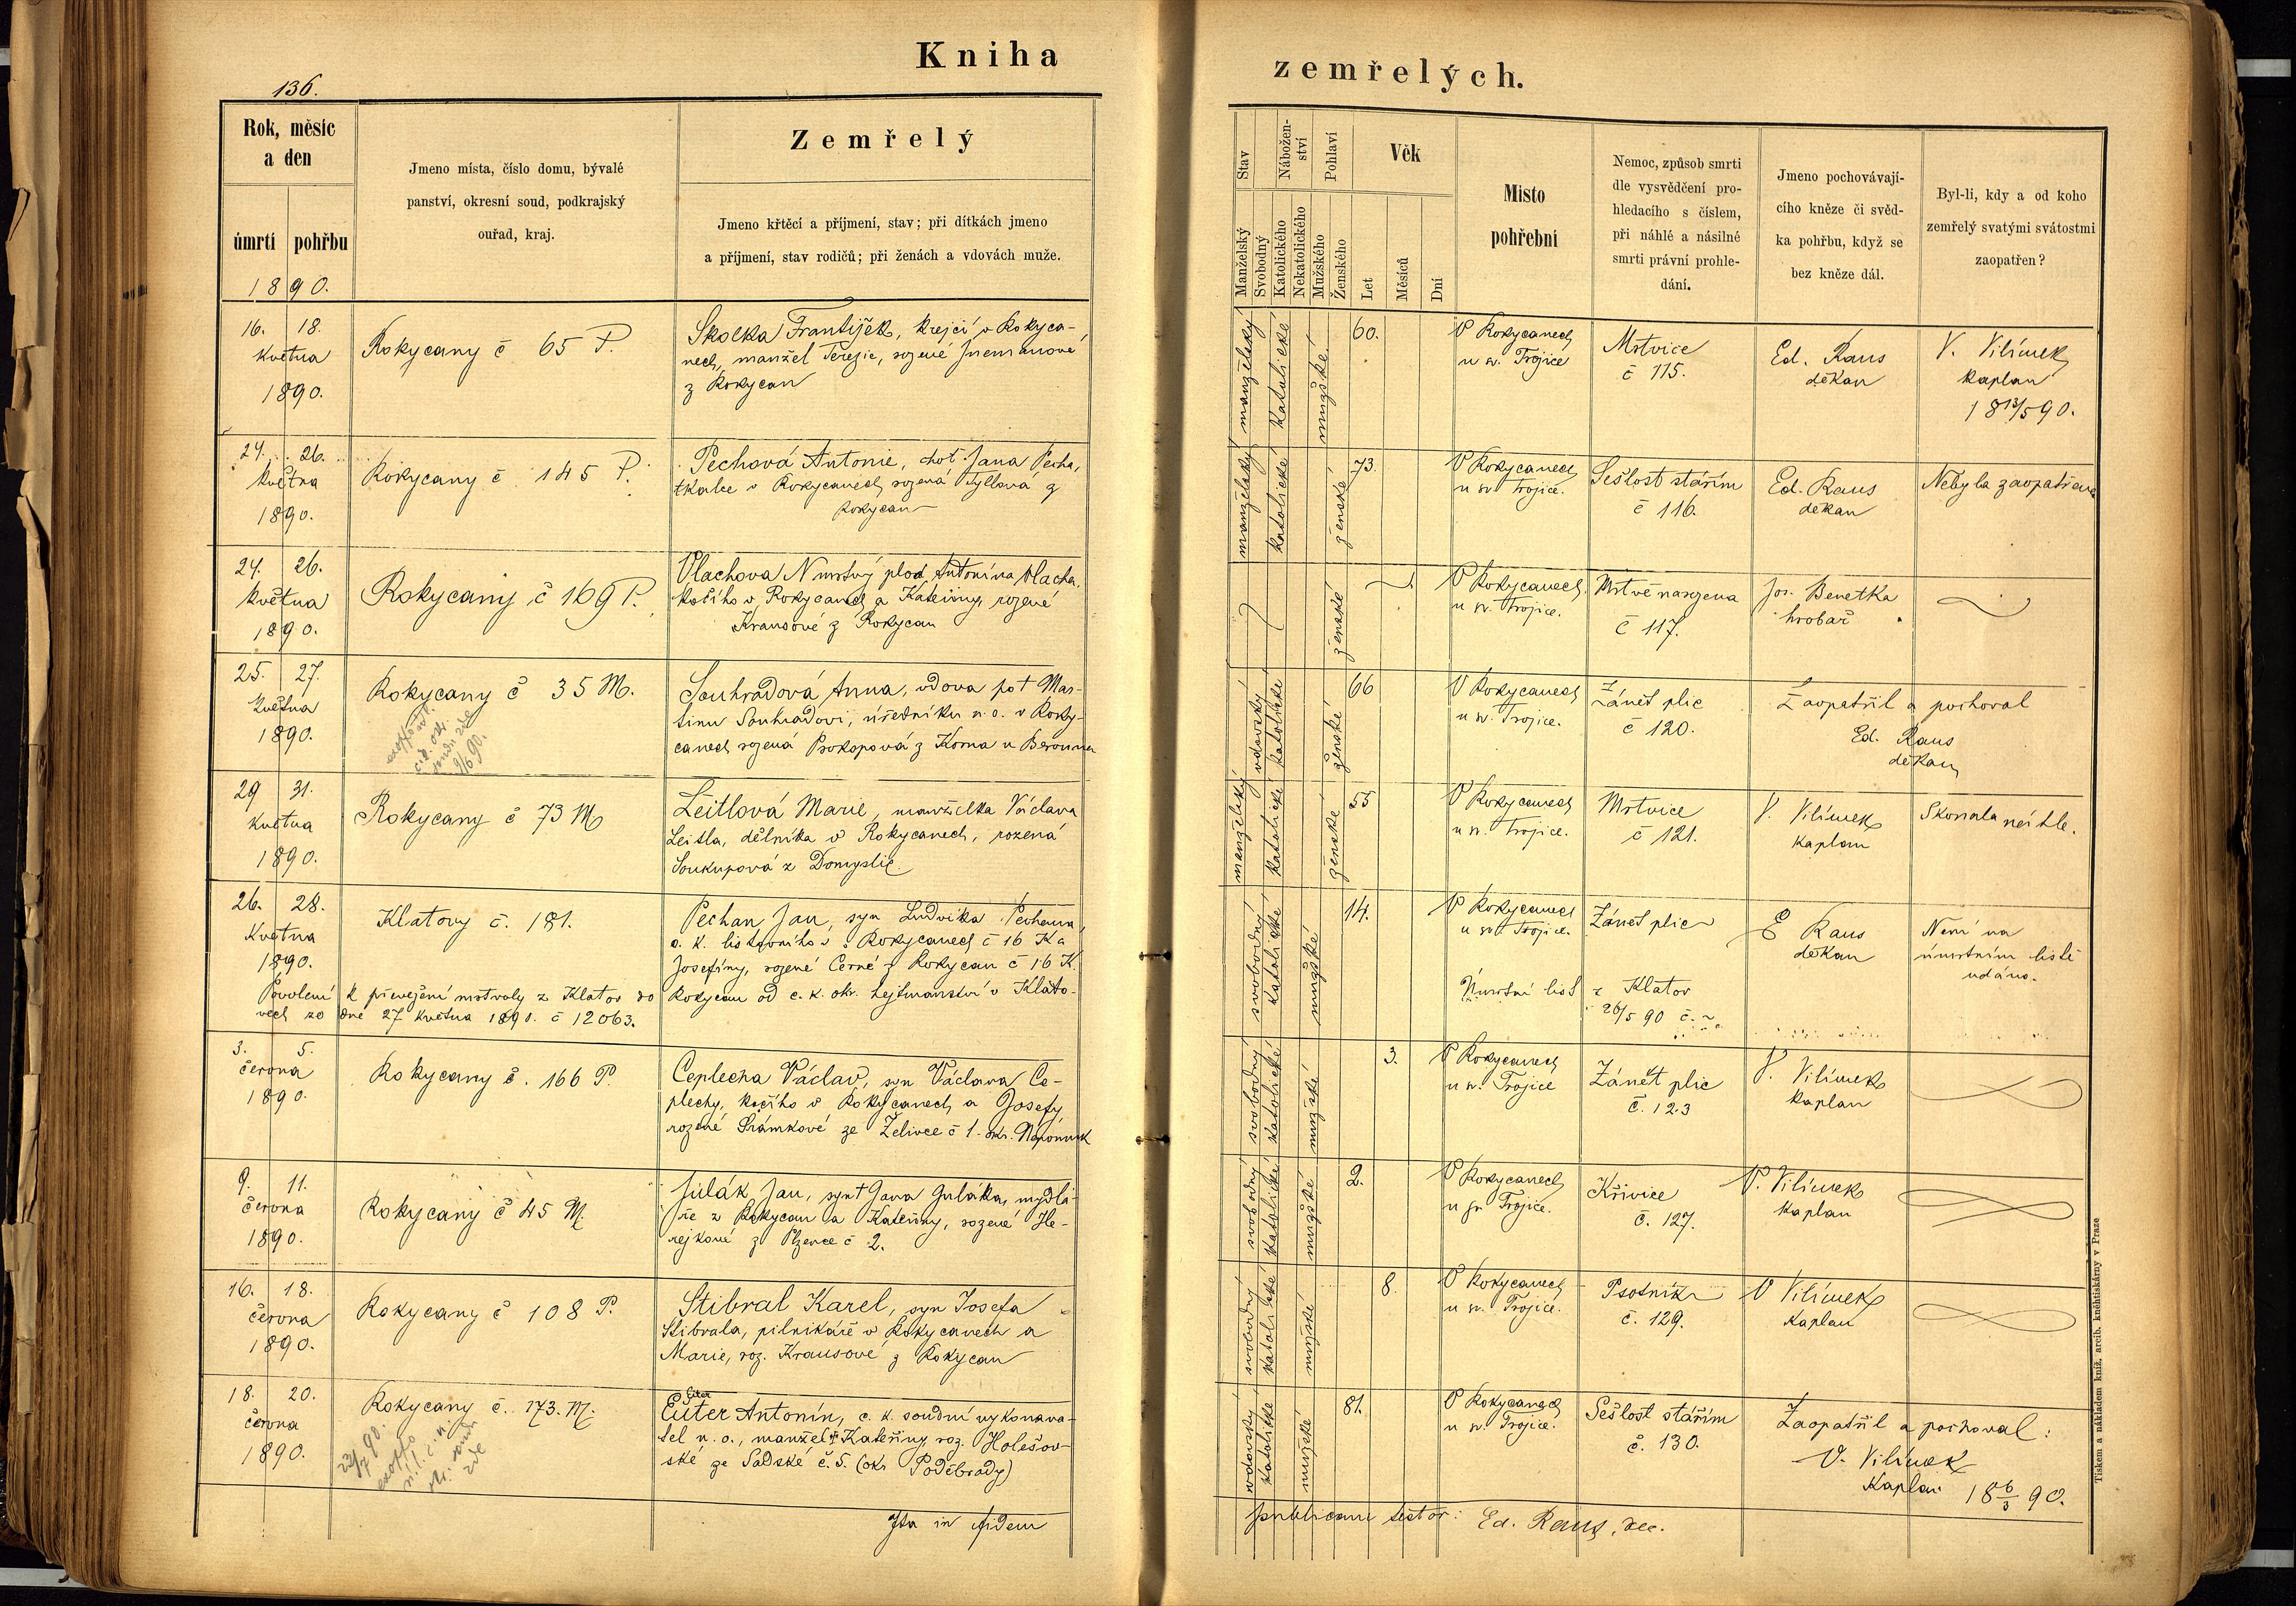 Kniha
zemřelých.
136.
Rok, měsíc
a den
úmrtí pohřbu
1890.
Jmeno místa, číslo domu, bývalé
panství, okresní soud, podkrajský
ouřad, kraj.
Zemřelý
Jmeno křtěcí a příjmení, stav; při dítkách jmeno
a příjmení, stav rodičů; při ženách a vdovách muže.
Stav
Manželský
Svobodný
Nábožen-
ství
Katolického
Nekatolického
Pohlaví
Mužského
Ženského
Věk
Let
Měsíců
Dní
Misto
pohřební
Nemoc, způsob smrti
dle vysvědčení pro-
hledacího s číslem,
při náhlé a násilné
smrti právní prohle-
dání.
Jmeno pochovávají-
cího kněze či svěd-
ka pohřbu, když se
bez kněze dál.
Byl-li, kdy a od koho
zemřelý svatými svátostmi
zaopatřen?
16. 18.
května
1890.
Rokycany č 65 P.
Skolka František, krejčí v Rokyca-
nech, manžel Terezie, rozené
z Rokycan
manželský
katolické
mužské
60.
V Rokycanech
u sv. Trojice
Mrtvice
č 115.
Ed. Raus
děkan
V. Vilímek
kaplan
18 13/5 90.
24. 26.
května
1890.
Rokycany č 145 P.
Pechová Antonie, choť Jana Pecha,
tkalce v Rokycanech rozená Tyllová z
Rokycan
manželský
katolické
ženské
73.
V Rokycanech
u sv. Trojice.
Sešlost stářím
č 116.
Ed. Raus
děkan
Nebyla zaopatřena
24. 26.
května
1890.
Rokycany č 169 P.
Vlachova N mrtvý plod Antonína Vlacha,
kočího v Rokycanech a Kateřiny, rozené
Krausové z Rokycan
ženské
V Rokycanech
u sv. Trojice.
Mrtvě narozena
č 117.
Jos. Benetka
hrobař
25. 27.
května
1890.
Rokycany č 35 M.
9/6 90.
Souhradová Anna, vdova po † Mar-
tinu Souhradovi, úředníku v. o. v Roky-
canech rozená Prokopová z Korna u Berouna
vdovský
katolické
ženské
66
V Rokycanech
u sv. Trojice.
Zánět plic
č 120.
Zaopatřil a pochoval
Ed. Raus
děkan
29 31.
května
1890.
Rokycany č 73 M
Leitlová Marie, manželka Václava
Leitla, dělníka v Rokycanech, rozená
Soukupová z Domyslic
manželský
katolické
ženské
55
V Rokycanech
u sv. Trojice.
Mrtvice
č 121.
V. Vilímek
kaplan
Skonala náhle.
26. 28.
Května
1890.
Klatovy č. 181.
Pechan Jan, syn Ludvíka Pechana,
c. k. listovního v Rokycanech č 16 K a
Josefíny, rozené Černé z Rokycan č 16 K.
Povolení k převezení mrtvoly z Klatov do Rokycan od c. k. okr. hejtmanství v Klato-
vech ze dne 27 května 1890. č 12063.
svobodný
katolické
mužské
14.
V Rokycanech
u sv. Trojice.
Zánět plic
E Raus
děkan
Není na
úmrtním listě
udáno.
Úmrtní list z Klatov
26/5 90 č.
3. 5.
června
1890.
Rokycany č. 166 P.
Ceplecha Václav, syn Václava Ce-
plechy, kočího v Rokycanech a Josefy,
rozené Šrámkové ze Želivce č 1. okr.
svobodný
katolické
mužské
3.
V Rokycanech
u sv. Trojice
Zánět plic
č. 123
V. Vilímek
kaplan
9. 11.
června
1890.
Rokycany č 45 M.
Julák Jan, syn † Jana Juláka, mydlá-
ře z Rokycan a Kateřiny, rozené He-
rejkové z Plzence č 2.
svobodný
katolické
mužské
2.
V Rokycanech
u sv. Trojice.
Křivice
č. 127.
V. Vilímek
kaplan
16. 18.
června
1890.
Rokycany č 108 P.
Stibral Karel, syn Josefa
Stibrala, pilnikáře v Rokycanech a
Marie, roz. Krausové z Rokycan
svobodný
katolické
mužské
8.
V Rokycanech
u sv. Trojice.
Psotník
č. 129.
V Vilímek
kaplan
18. 20.
června
1890.
Rokycany č. 173. M.
22/7 90.
exoffo
Eiter
Euter Antonín, c. k. soudní vykonava-
tel v. o., manžel † Kateřiny roz. Holešov-
ské ze Sadské č. 5. (okr Poděbrady)
vdovský
katolické
mužské
81.
V Rokycanech
u sv. Trojice.
Sešlost stářím
č. 130.
Zaopatřil a pochoval:
V. Vilímek
Kaplan 18 6/3 90.
Ita in fidem publicam testor: Ed. Raus, dec.
Tiskem a nákladem kníž. arcib. knihtiskárny v Praze